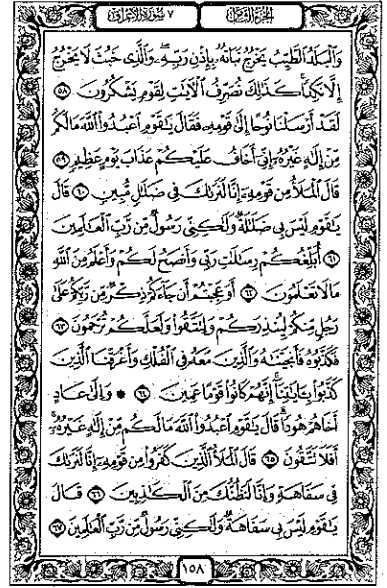 الجزء الثامن ٧ سورة الأعراف
وَالْبَلَدُ الطَّيِّبُ يَخْرُجُ نَبَاتُهُ بِإِذْنِ رَبِّهِ وَالَّذِي خَبُثَ لَا يَخْرُجُ
إِلَّا نَكِدًا كَذَٰلِكَ نُصَرِّفُ الْآيَٰتِ لِقَوْمٍ يَشْكُرُونَ ٥٨
لَقَدْ أَرْسَلْنَا نُوحًا إِلَىٰ قَوْمِهِ فَقَالَ يَٰقَوْمِ اعْبُدُوا اللَّهَ مَالَكُم
مِّنْ إِلَٰهٍ غَيْرُهُ إِنِّي أَخَافُ عَلَيْكُمْ عَذَابَ يَوْمٍ عَظِيمٍ ٥٩
قَالَ الْمَلَأُ مِن قَوْمِهِ إِنَّا لَنَرَىٰكَ فِي ضَلَٰلٍ مُّبِينٍ ٦٠ قَالَ
يَٰقَوْمِ لَيْسَ بِي ضَلَٰلَةٌ وَلَٰكِنِّي رَسُولٌ مِّن رَّبِّ الْعَٰلَمِينَ
٦١ أُبَلِّغُكُمْ رِسَٰلَٰتِ رَبِّي وَأَنصَحُ لَكُمْ وَأَعْلَمُ مِنَ اللَّهِ
مَا لَا تَعْلَمُونَ ٦٢ أَوَعَجِبْتُمْ أَن جَاءَكُمْ ذِكْرٌ مِّن رَّبِّكُمْ عَلَىٰ
رَجُلٍ مِّنكُمْ لِيُنذِرَكُمْ وَلِتَتَّقُوا وَلَعَلَّكُمْ تُرْحَمُونَ ٦٣
فَكَذَّبُوهُ فَأَنجَيْنَٰهُ وَالَّذِينَ مَعَهُ فِي الْفُلْكِ وَأَغْرَقْنَا الَّذِينَ
كَذَّبُوا بِـَٔايَٰتِنَا إِنَّهُمْ كَانُوا قَوْمًا عَمِينَ ٦٤ * وَإِلَىٰ عَادٍ
أَخَاهُمْ هُودًا قَالَ يَٰقَوْمِ اعْبُدُوا اللَّهَ مَالَكُم مِّنْ إِلَٰهٍ غَيْرُهُ
أَفَلَا تَتَّقُونَ ٦٥ قَالَ الْمَلَأُ الَّذِينَ كَفَرُوا مِن قَوْمِهِ إِنَّا لَنَرَىٰكَ
فِي سَفَاهَةٍ وَإِنَّا لَنَظُنُّكَ مِنَ الْكَٰذِبِينَ ٦٦ قَالَ
يَٰقَوْمِ لَيْسَ بِي سَفَاهَةٌ وَلَٰكِنِّي رَسُولٌ مِّن رَّبِّ الْعَٰلَمِينَ ٦٧
١٥٨